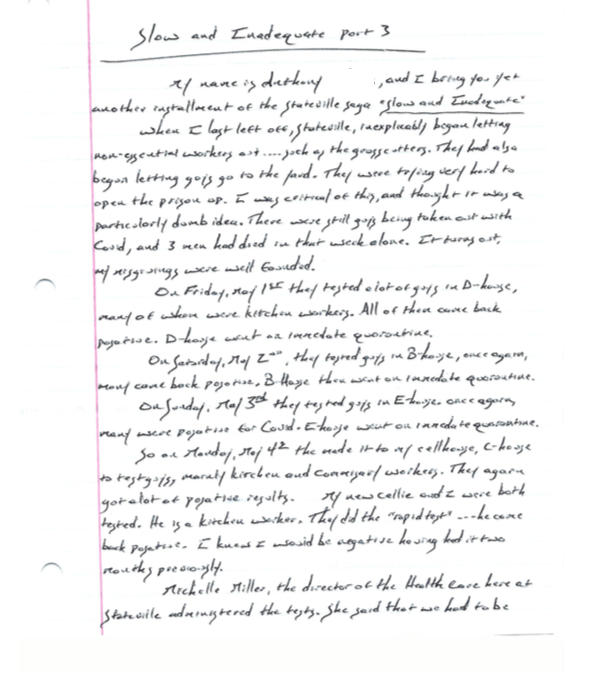 Slow and Inadequate part 3
My name is Anthony , and I bring you yet
another installment of the Stateville saga "Slow and Inadequate"
When I last left off, Stateville, inexplicably began letting
non-essential workers out .... such as the grasscutters. They had also
begun letting guys go to the yard. They were trying very hard to
open the prison up. I was critical of this, and thought it was a
particularly dumb idea. There were still guys being taken out with
Covid, and 3 men had died in that week alone. It turns out,
my misgivings were well founded.
On Friday, May 1st they tested a lot of guys in D-house,
many of whom were kitchen workers. All of then came back
posative. D-house went on immedate quarantine.
On Saturday, May 2nd, they tested guys in B-house, once again,
many came back posative. B-House then went on immedate quarantine.
On Sunday, May 3rd they tested guys in E-house. once again,
many were posative for Covid. E-house went on immedate quarantine.
So on Monday, May 4th the made it to my cellhouse, C-house
to test guys, mainly kitchen and commisary workers. They again
got a lot of posative results. My new cellie and I were both
tested. He is a kitchen worker. They did the "rapid test" ... he came
back posative. I knew I would be negative having had it two
months previously.
Michelle Miller, the director of the Health Care here at
Stateville administered the tests. She said that we had to be